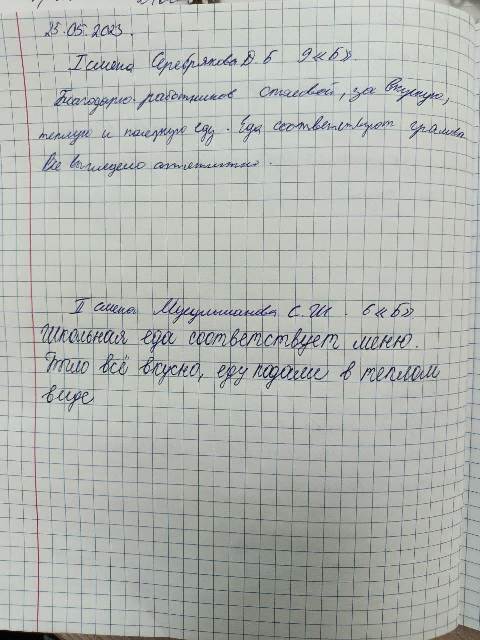 23.05.2023.
I смена Серебрякова Д.Б 9«Б».
Благодарю работников столовой, за вкусную,
теплую и полезную еду. Еда соответствуют грамовка
Всё выглядело аппетитно.
II смена С.Ш 6«Б»
Школьная еда соответствует меню.
было всё вкусно, еду подали в теплом
виде